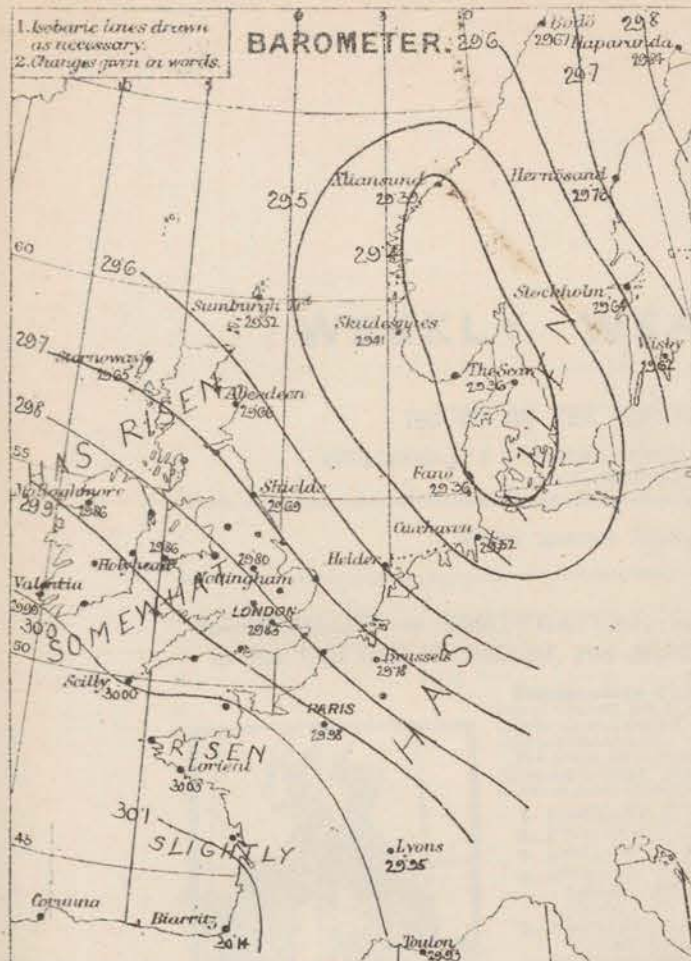 1. Isobaric lines drawn
as necessary.
2. Changes given in words.
BAROMETER.
10
5
0
5
10
296
Bodö
2967
298
Haparanda
2984
297
Xtiansund
2939
Hernösand
2976
295
294
60
296
Sumburgh Hd
2952
Skudesnes
2941
Stockholm
2964
Wisby
2962
297
Stornoway
2965
Aberdeen
2960
The Scaw
2936
298
HAS RISEN
55
Mullaghmore
2986
299
Shields
2969
Fanö
2936
FALLEN
Cuxhaven
2952
2986
Holyhead
2980
Nottingham
Helder
Valentia
2996
300
SOMEWHAT
LONDON
2983
50
Scilly
3000
Brussels
2978
HAS
PARIS
2998
RISEN
Lorient
3003
301
45
SLIGHTLY
Lyons
2995
Corunna
Biarritz
3014
Toulon
2993